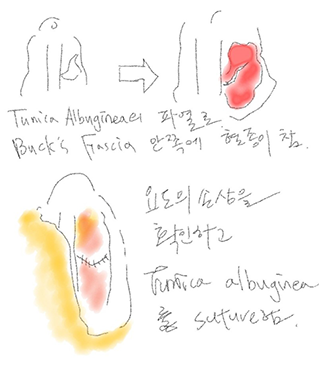 Tunica Albuginea의 파열로
Buck's Fascia 안쪽에 혈종이 참.
요도의 손상을
확인하고
Tunica albuginea
를 suture함.